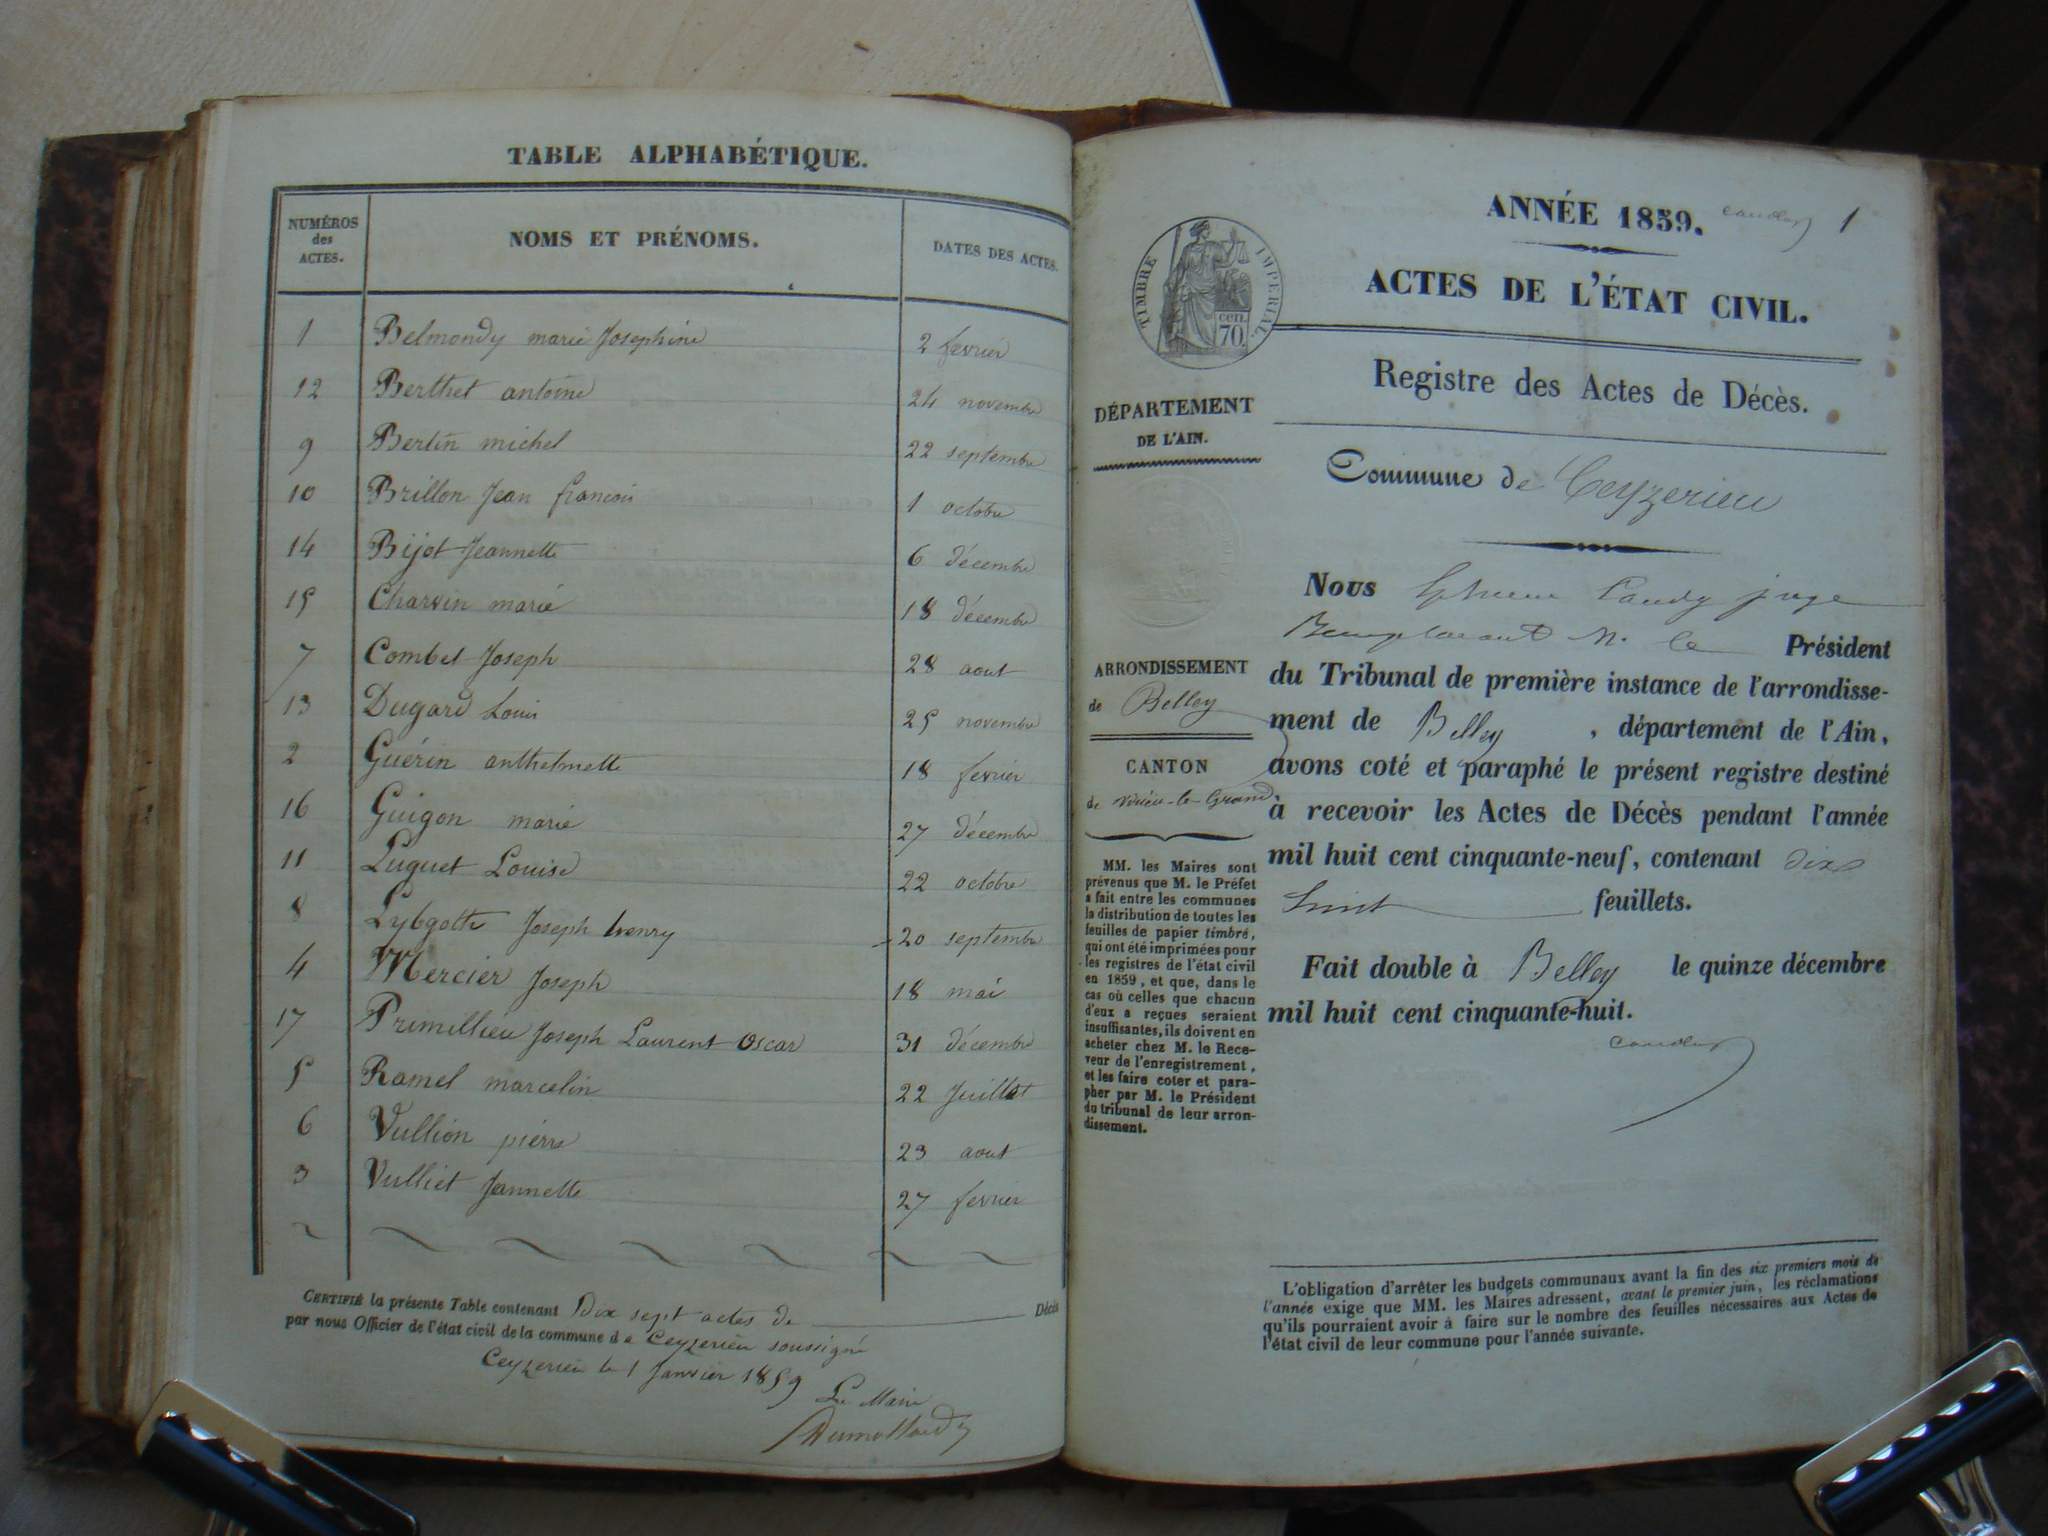 TABLE ALPHABÉTIQUE.
NUMÉROS des ACTES. NOMS ET PRÉNOMS. DATES DES ACTES.
1 Belmondy marie Josephine 2 fevrier
12 Berthet antoine 24 novembre
9 Bertin michel 22 septembre
10 Brillon Jean francois 1 octobre
14 Bijot Jeannette 6 décembre
15 Charvin marie 18 décembre
7 Combet Joseph 28 aout
13 Dugard Louis 25 novembre
2 Guérin anthelmette 18 fevrier
16 Guigon marie 27 décembre
11 Luguet Louise 22 octobre
8 Lybgott Joseph henry 20 septembre
4 Mercier Joseph 18 mai
17 Primillieu Joseph Laurent Oscar 31 décembre
5 Ramel marcelin 22 Juillet
6 Vullion pierre 23 aout
3 Vulliet Jannette 27 fevrier
CERTIFIÉ la présente Table contenant Dix sept actes de Décès
par nous Officier de l'état civil de la commune de Ceyzerieu soussigné
Ceyzerieu le 1 Janvier 1859
Le Maire
Dumollard
ANNÉE 1859. 1
ACTES DE L'ÉTAT CIVIL.
TIMBRE IMPÉRIAL.
cen. 70.
Registre des Actes de Décès.
DÉPARTEMENT
DE L'AIN.
Commune de Ceyzerieu
ARRONDISSEMENT
de Belley
CANTON
de virieu-le-Grand
MM. les Maires sont
prévenus que M. le Préfet
a fait entre les communes
la distribution de toutes les
feuilles de papier timbré,
qui ont été imprimées pour
les registres de l'état civil
en 1859, et que, dans le
cas où celles que chacun
d'eux a reçues seraient
insuffisantes, ils doivent en
acheter chez M. le Rece-
veur de l'enregistrement,
et les faire coter et para-
pher par M. le Président
du tribunal de leur arron-
dissement.
Nous juge
M. le Président
du Tribunal de première instance de l'arrondisse-
ment de Belley, département de l'Ain,
avons coté et paraphé le présent registre destiné
à recevoir les Actes de Décès pendant l'année
mil huit cent cinquante-neuf, contenant dix
huit feuillets.
Fait double à Belley le quinze décembre
mil huit cent cinquante-huit.
L'obligation d'arrêter les budgets communaux avant la fin des six premiers mois de
l'année exige que MM. les Maires adressent, avant le premier juin, les réclamations
qu'ils pourraient avoir à faire sur le nombre des feuilles nécessaires aux Actes de
l'état civil de leur commune pour l'année suivante.